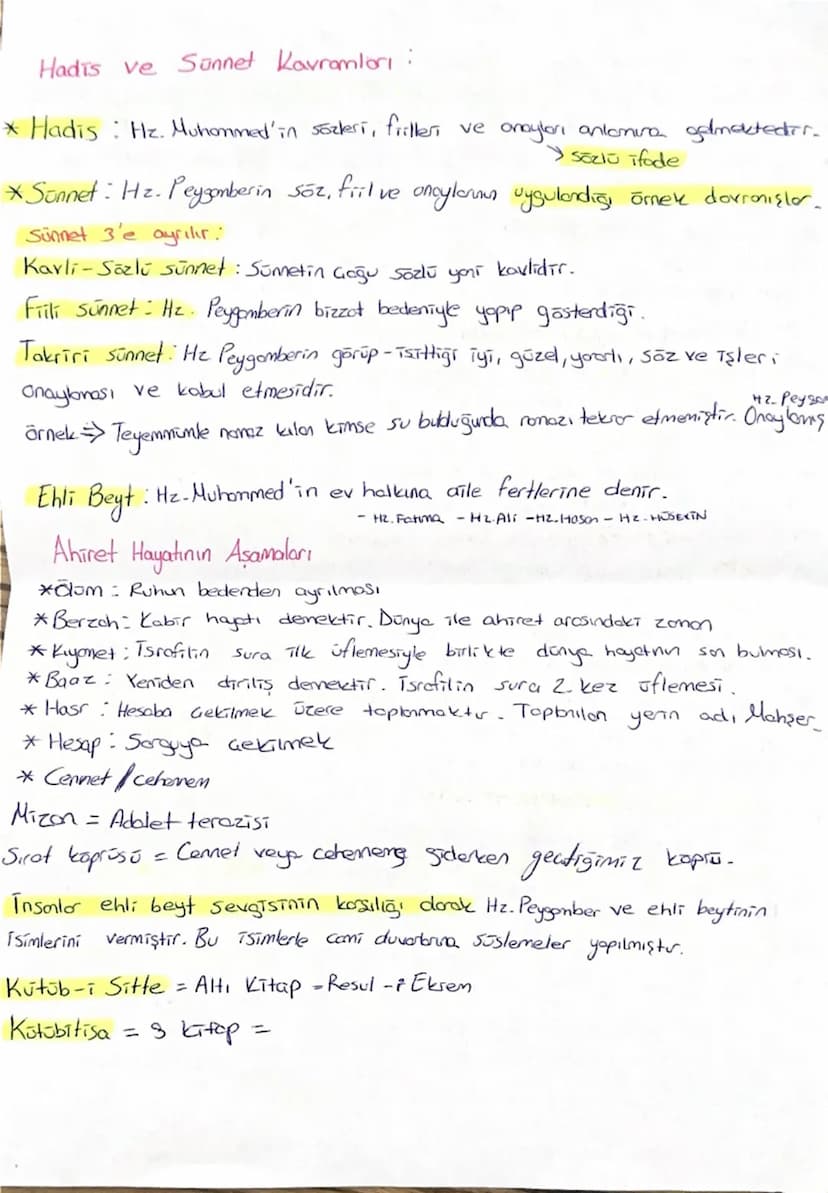 Hadis ve Sünnet Kavramları :
* Hadis : Hz. Muhammed'in sözleri, fiilleri ve onayları anlamına gelmektedir.
→ sözlü ifade
* Sünnet : Hz. Peygamberin söz, fiil ve onaylarının uygulandığı örnek davranışlar.
Sünnet 3'e ayrılır :
Kavli - Sözlü sünnet : Sünnetin çoğu sözlü yani kavlidir.
Fiili sünnet : Hz. Peygamberin bizzat bedeniyle yapıp gösterdiği.
Takriri sünnet : Hz Peygamberin görüp - işittiği iyi, güzel, yararlı, söz ve işleri
onaylaması ve kabul etmesidir.
Hz. Peygam
örnek => Teyemmümle namaz kılan kimse su bulduğunda namazı tekrar etmemiştir. Onaylamış
Ehli Beyt : Hz. Muhammed'in ev halkına aile fertlerine denir.
- Hz. Fatma - Hz. Ali - Hz. Hasan - Hz. HÜSEYİN
Ahiret Hayatının Aşamaları
* Ölüm : Ruhun bedenden ayrılması
* Berzah : Kabir hayatı demektir. Dünya ile ahiret arasındaki zaman
* Kıyamet : İsrafilin sura ilk üflemesiyle birlikte dünya hayatının son bulması.
* Baas : Yeniden diriliş demektir. İsrafilin sura 2. kez üflemesi.
* Haşr : Hesaba çekilmek üzere toplanmaktır. Toplanılan yerin adı Mahşer.
* Hesap : Sorguya çekilmek
* Cennet / cehenem
Mizan = Adalet terazisi
Sırat köprüsü = Cennet veya ceheneme giderken geçtiğimiz köprü.
İnsanlar ehli beyt sevgisinin karşılığı olarak Hz. Peygamber ve ehli beytinin
isimlerini vermiştir. Bu isimlerle cami duvarlarına süslemeler yapılmıştır.
Kütüb-i Sitte = Altı Kitap = Resul-i Ekrem
Kütübitisa = 9 kitap =